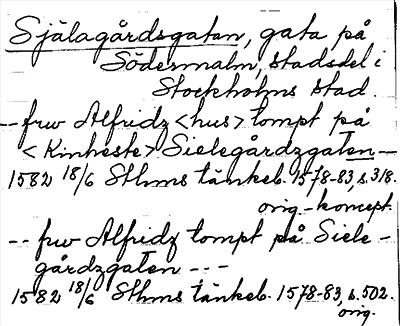 Själagårdsgatan, gata på
Södermalm, stadsdel i
Stockholms stad.
-- frw Alfridz <hus> tompt på
<Kinheste> Sielegårdzgaten --
1582 18/6 Sthms tänkeb. 1578-83, s. 318.
orig.-koncept.
-- frw Alfridz tompt på Siele-
gårdzgaten ---
1582 18/6 Sthms tänkeb. 1578-83, s. 502.
orig.